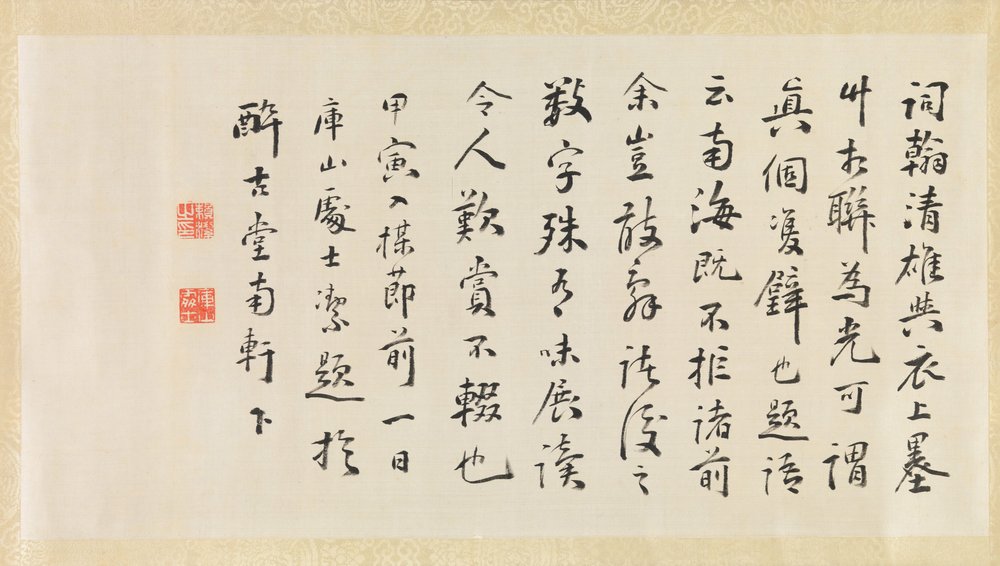 詞翰清雄與衣上墨
艸相聯為光可謂
眞個雙璧也題語
云南海既不拒諸前
余豈敢辭諸後之
數字殊有味展讀
令人歎賞不輟也
甲寅入梅節前一日
庫山處士潔題於
醉古堂南軒下
賴潔之印
庫山處士